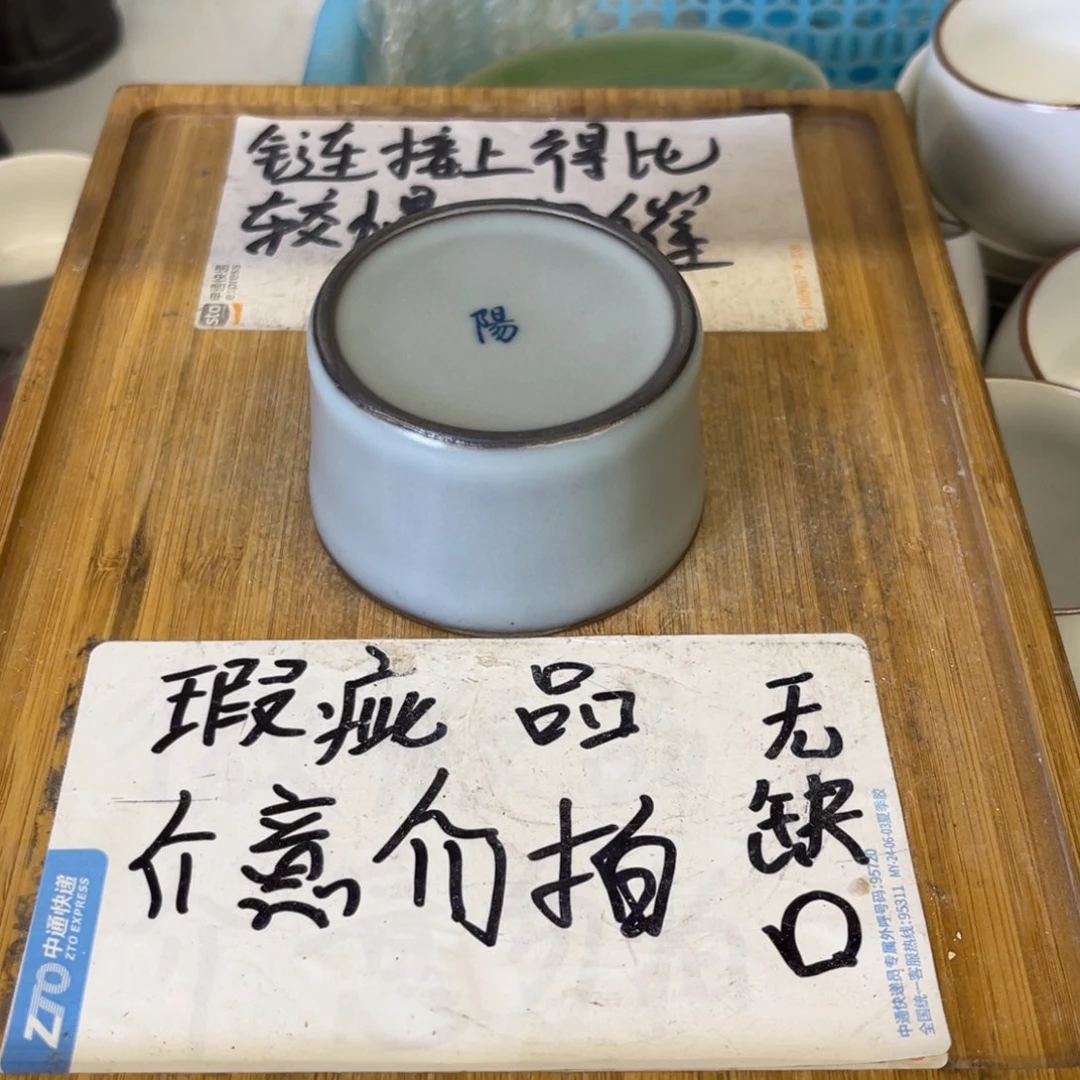 链接上得比
较慢 催
sto 申通快递
express
陽
瑕疵品
介意勿拍
无缺口
ZTO 中通快递
ZTO EXPRESS
中通快递员专属外呼号码:95720
全国统一客服热线:95311 MY-24-06-03夏季胶